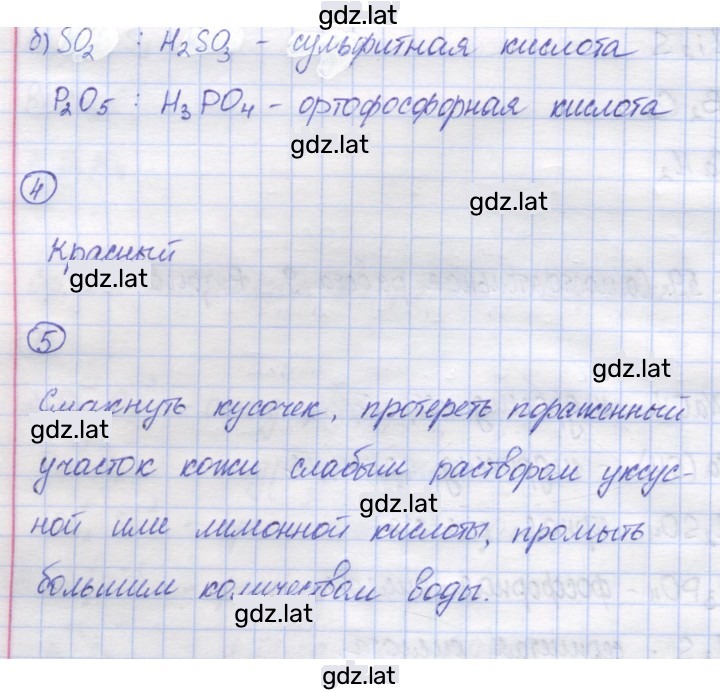 gdz.lat
б) SO₂ : H₂SO₃ - сульфитная кислота
P₂O₅ : H₃PO₄ - ортофосфорная кислота
gdz.lat
4
gdz.lat
Красный
gdz.lat
5
gdz.lat
Смахнуть кусочек, протереть пораженный
gdz.lat
участок кожи слабым раствором уксус-
gdz.lat
ной или лимонной кислоты, промыть
большим количеством воды.
gdz.lat
gdz.lat